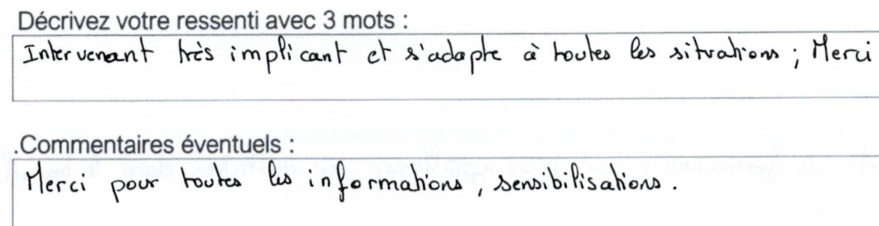 Décrivez votre ressenti avec 3 mots :
Intervenant très implicant et s'adapte à toutes les situations ; Merci
.Commentaires éventuels :
Merci pour toutes les informations, sensibilisations.